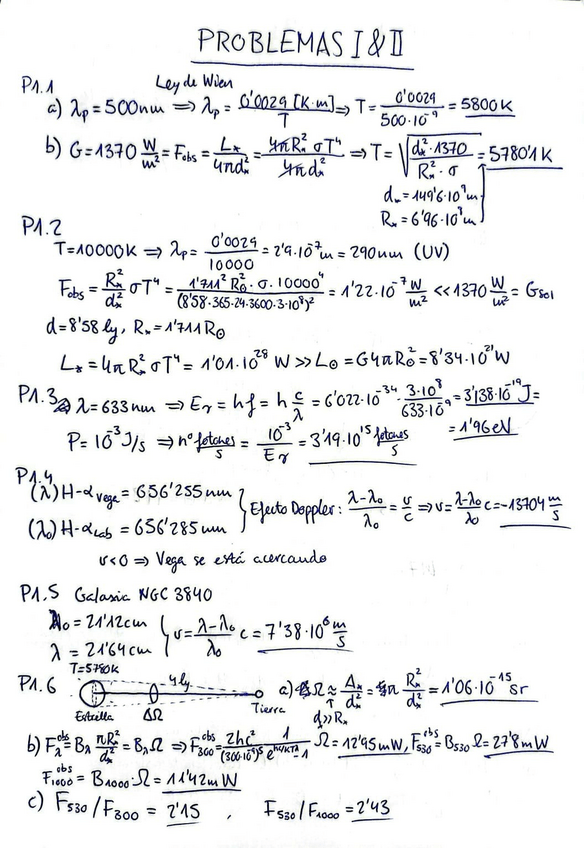 PROBLEMAS I & II
P1.1 Ley de Wien
a) λp = 500nm ⇒ λp = 0'0029 [K·m] / T ⇒ T = 0'0029 / 500·10^-9 = 5800K
b) G = 1370 W/m² = Fobs = L* / 4πd*² = 4πR*² σT⁴ / 4πd*² ⇒ T = √(d*²·1370 / R*²·σ) = 5780'1K
d* = 149'6·10⁹m
R* = 6'96·10⁸m
P1.2
T=10000K ⇒ λp = 0'0029 / 10000 = 2'9·10^-7 m = 290nm (UV)
Fobs = R*²/d*² σT⁴ = 1'711² R⊙²·σ·10000⁴ / (8'58·365·24·3600·3·10⁸)² = 1'22·10^-7 W/m² << 1370 W/m² = Gsol
d=8'58 ly, R* = 1'711R⊙
L* = 4πR*² σT⁴ = 1'01·10^28 W >> L⊙ = G4πR⊙² = 8'34·10^21 W
P1.3
λ = 633nm ⇒ Eγ = hf = h c/λ = 6'022·10^-34 · 3·10⁸ / 633·10^-9 = 3'138·10^-19 J =
= 1'96eV
P = 10^-3 J/s ⇒ nº fotones/s = 10^-3 / Eγ = 3'19·10^15 fotones/s
P1.4
(λ) H-α vega = 656'255nm
(λ₀) H-α Lab = 656'285nm
Efecto Doppler: λ-λ₀ / λ₀ = v/c ⇒ v = λ-λ₀ / λ₀ c = -13704 m/s
v<0 ⇒ Vega se está acercando
P1.5 Galaxia NGC 3840
λ₀ = 21'12cm
λ = 21'64cm
v = λ-λ₀ / λ₀ c = 7'38·10⁶ m/s
P1.6
T=5780K
4ly
Estrella ΔΩ Tierra
a) Ω ≈ A* / d*² = π R*² / d*² = 1'06·10^-15 sr
d>>R*
b) Fλ^obs = Bλ πR*² / d*² = BλΩ ⇒ F300^obs = 2hc² / (300·10^-9)^5 · 1 / e^(hc/λkT)-1 Ω = 12'95mW, F530^obs = B530 Ω = 27'8mW
F1000^obs = B1000·Ω = 11'42mW
c) F530/F300 = 2'15 , F530/F1000 = 2'43